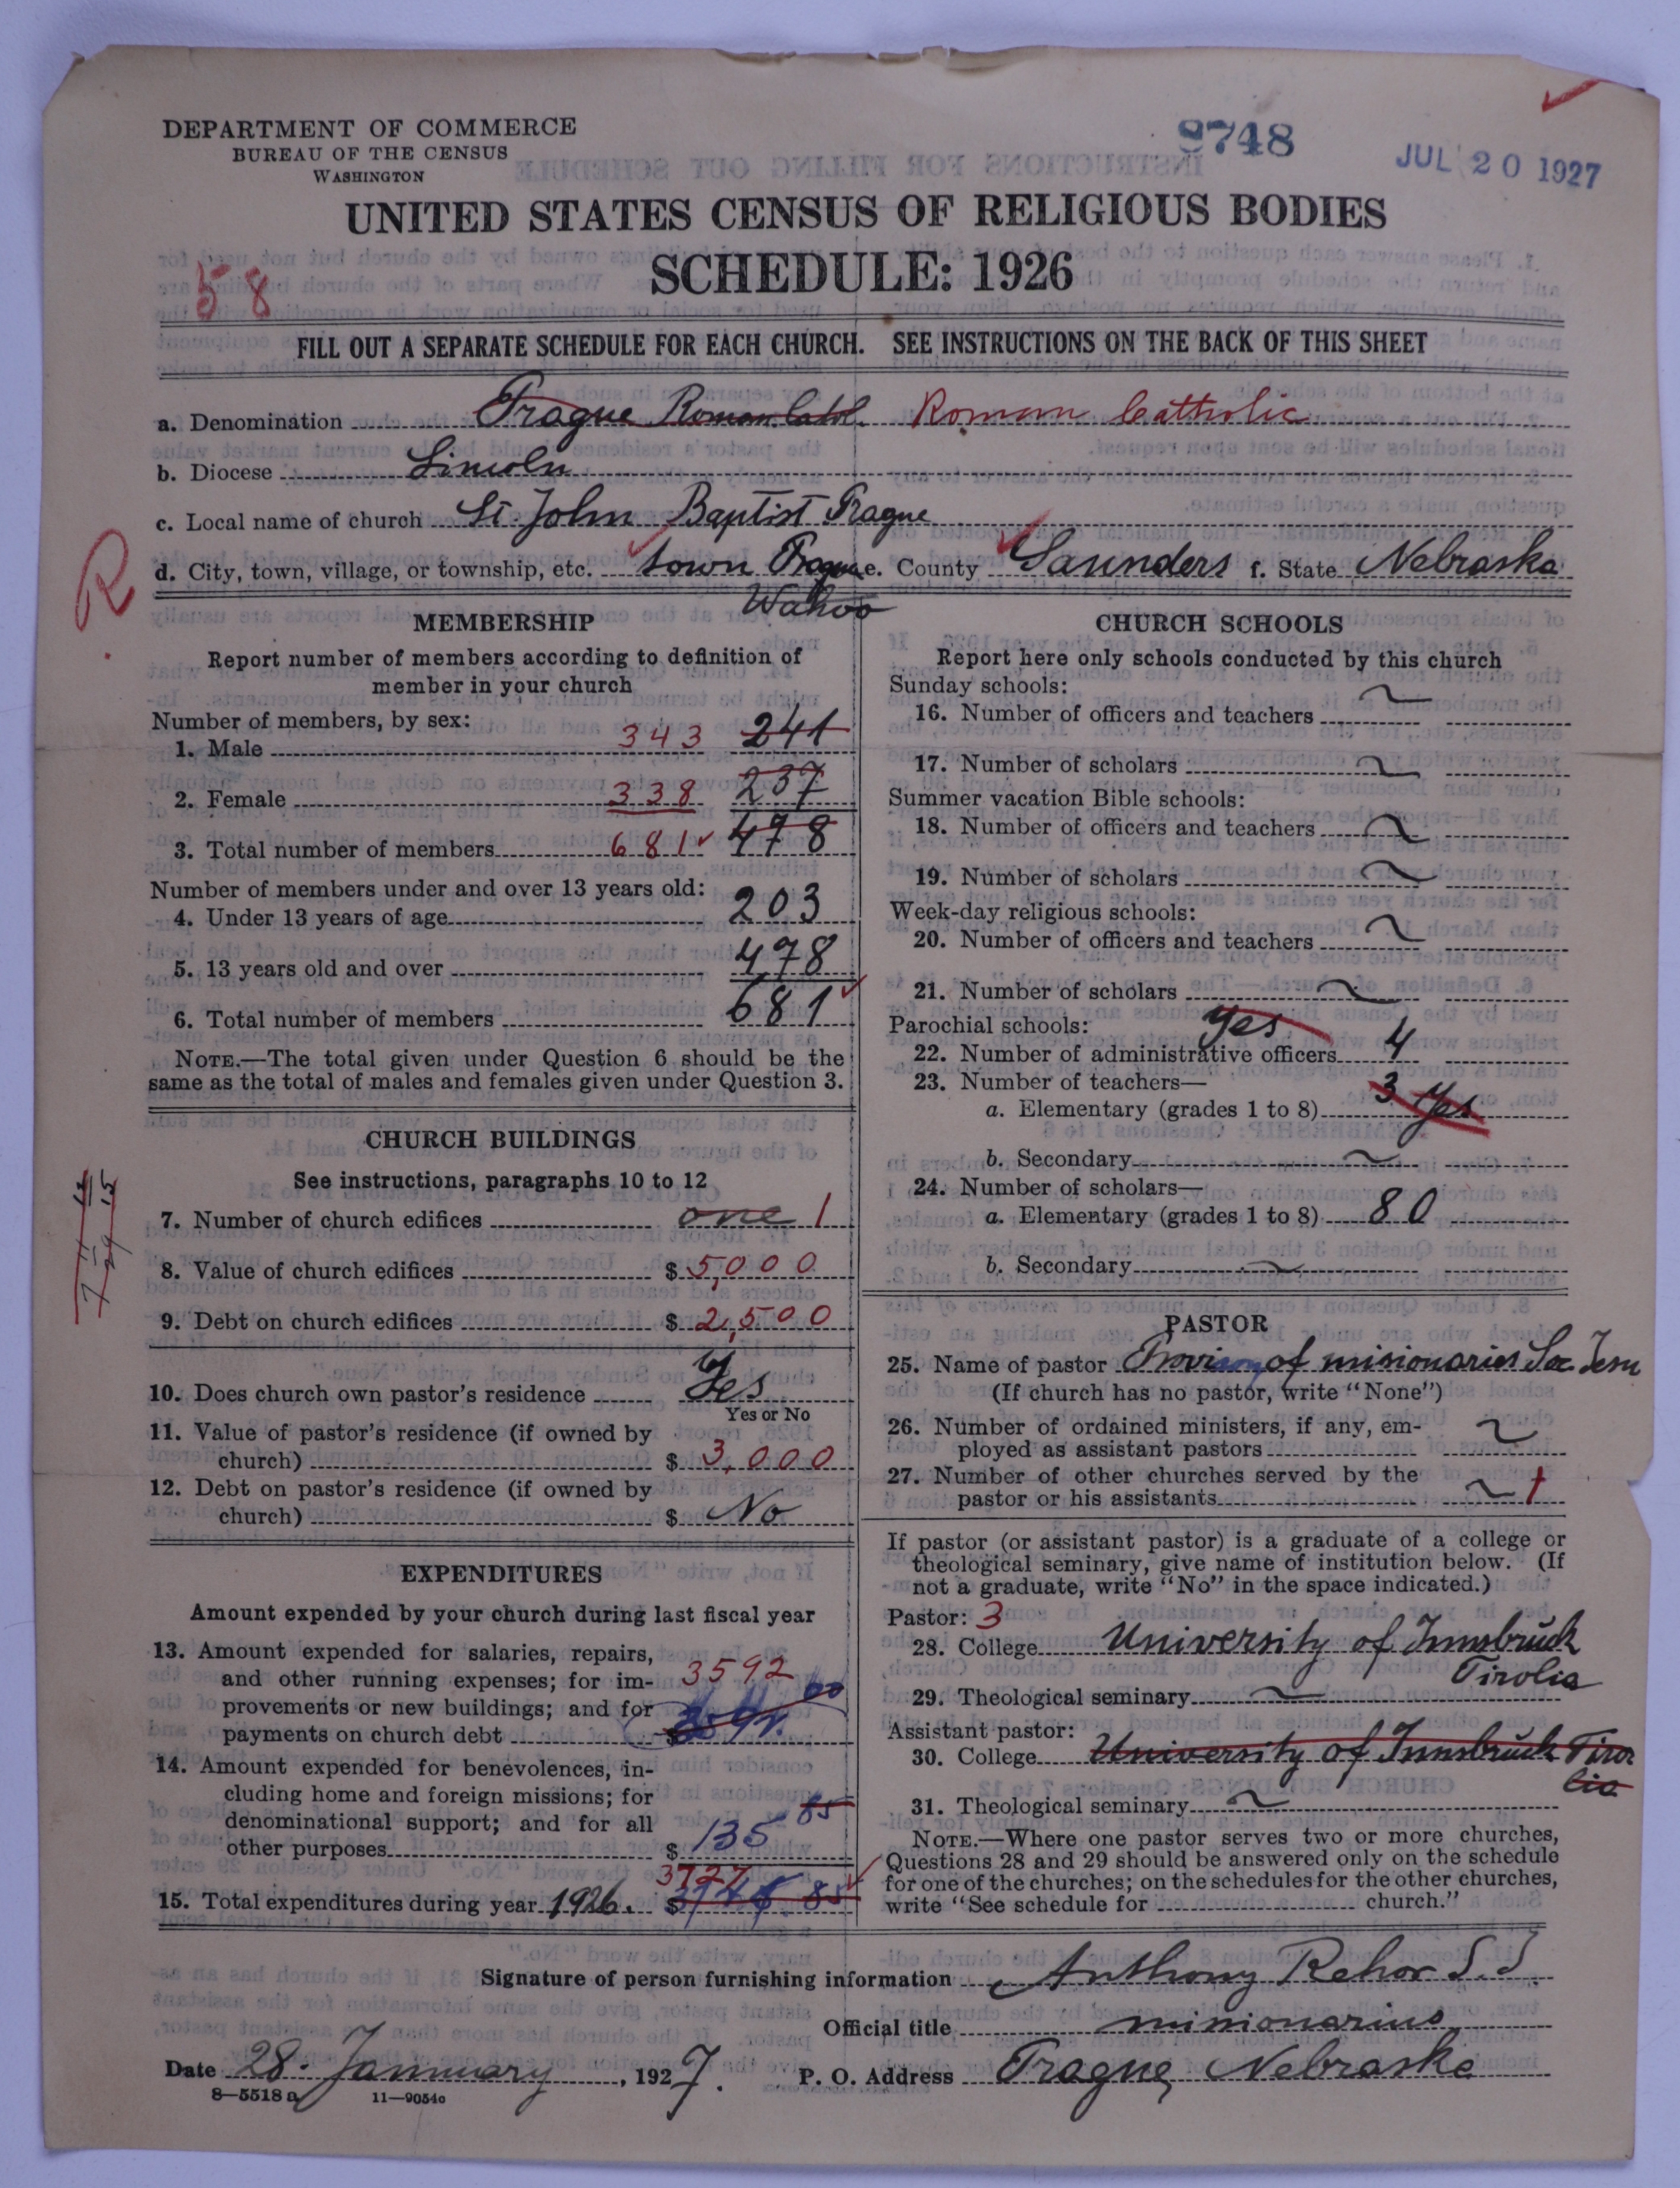 DEPARTMENT OF COMMERCE
BUREAU OF THE CENSUS
WASHINGTON
9748
JUL 20 1927
UNITED STATES CENSUS OF RELIGIOUS BODIES
SCHEDULE: 1926
58
FILL OUT A SEPARATE SCHEDULE FOR EACH CHURCH. SEE INSTRUCTIONS ON THE BACK OF THIS SHEET
a. Denomination Prague Roman Cathl. Roman Catholic
b. Diocese Lincoln
c. Local name of church St. John Baptist Prague
R
d. City, town, village, or township, etc. town Prague e. County Saunders f. State Nebraska
Wahoo
MEMBERSHIP
Report number of members according to definition of
member in your church
Number of members, by sex:
1. Male 343 241
2. Female 338 237
3. Total number of members 681 478
Number of members under and over 13 years old:
4. Under 13 years of age 203
5. 13 years old and over 478
6. Total number of members 681
NOTE.—The total given under Question 6 should be the
same as the total of males and females given under Question 3.
CHURCH BUILDINGS
See instructions, paragraphs 10 to 12
7. Number of church edifices one 1
8. Value of church edifices $ 5,000
9. Debt on church edifices $ 2,500
10. Does church own pastor's residence Yes
Yes or No
11. Value of pastor's residence (if owned by
church) $ 3,000
12. Debt on pastor's residence (if owned by
church) $ No
EXPENDITURES
Amount expended by your church during last fiscal year
13. Amount expended for salaries, repairs,
and other running expenses; for im-
provements or new buildings; and for
payments on church debt $ 3592
14. Amount expended for benevolences, in-
cluding home and foreign missions; for
denominational support; and for all
other purposes $ 135 85
15. Total expenditures during year 1926. $ 3727
CHURCH SCHOOLS
Report here only schools conducted by this church
Sunday schools:
16. Number of officers and teachers ~
17. Number of scholars ~
Summer vacation Bible schools:
18. Number of officers and teachers ~
19. Number of scholars ~
Week-day religious schools:
20. Number of officers and teachers ~
21. Number of scholars ~
Parochial schools: Yes
22. Number of administrative officers 4
23. Number of teachers—
a. Elementary (grades 1 to 8) 3 Yes
b. Secondary ~
24. Number of scholars—
a. Elementary (grades 1 to 8) 80
b. Secondary ~
PASTOR
25. Name of pastor of misionaries Soc. Jesu
(If church has no pastor, write "None")
26. Number of ordained ministers, if any, em-
ployed as assistant pastors ~
27. Number of other churches served by the
pastor or his assistants ~ 1
If pastor (or assistant pastor) is a graduate of a college or
theological seminary, give name of institution below. (If
not a graduate, write "No" in the space indicated.)
Pastor: 3
28. College University of Innsbruck
Tirolia
29. Theological seminary ~
Assistant pastor:
30. College University of Innsbruck Tiro
lia
31. Theological seminary ~
NOTE.—Where one pastor serves two or more churches,
Questions 28 and 29 should be answered only on the schedule
for one of the churches; on the schedules for the other churches,
write "See schedule for church."
Signature of person furnishing information Anthony Rehor S.J.
Official title missionarius
Date 28. January, 1927. P. O. Address Prague, Nebraska
8—5518 a 11—9054c